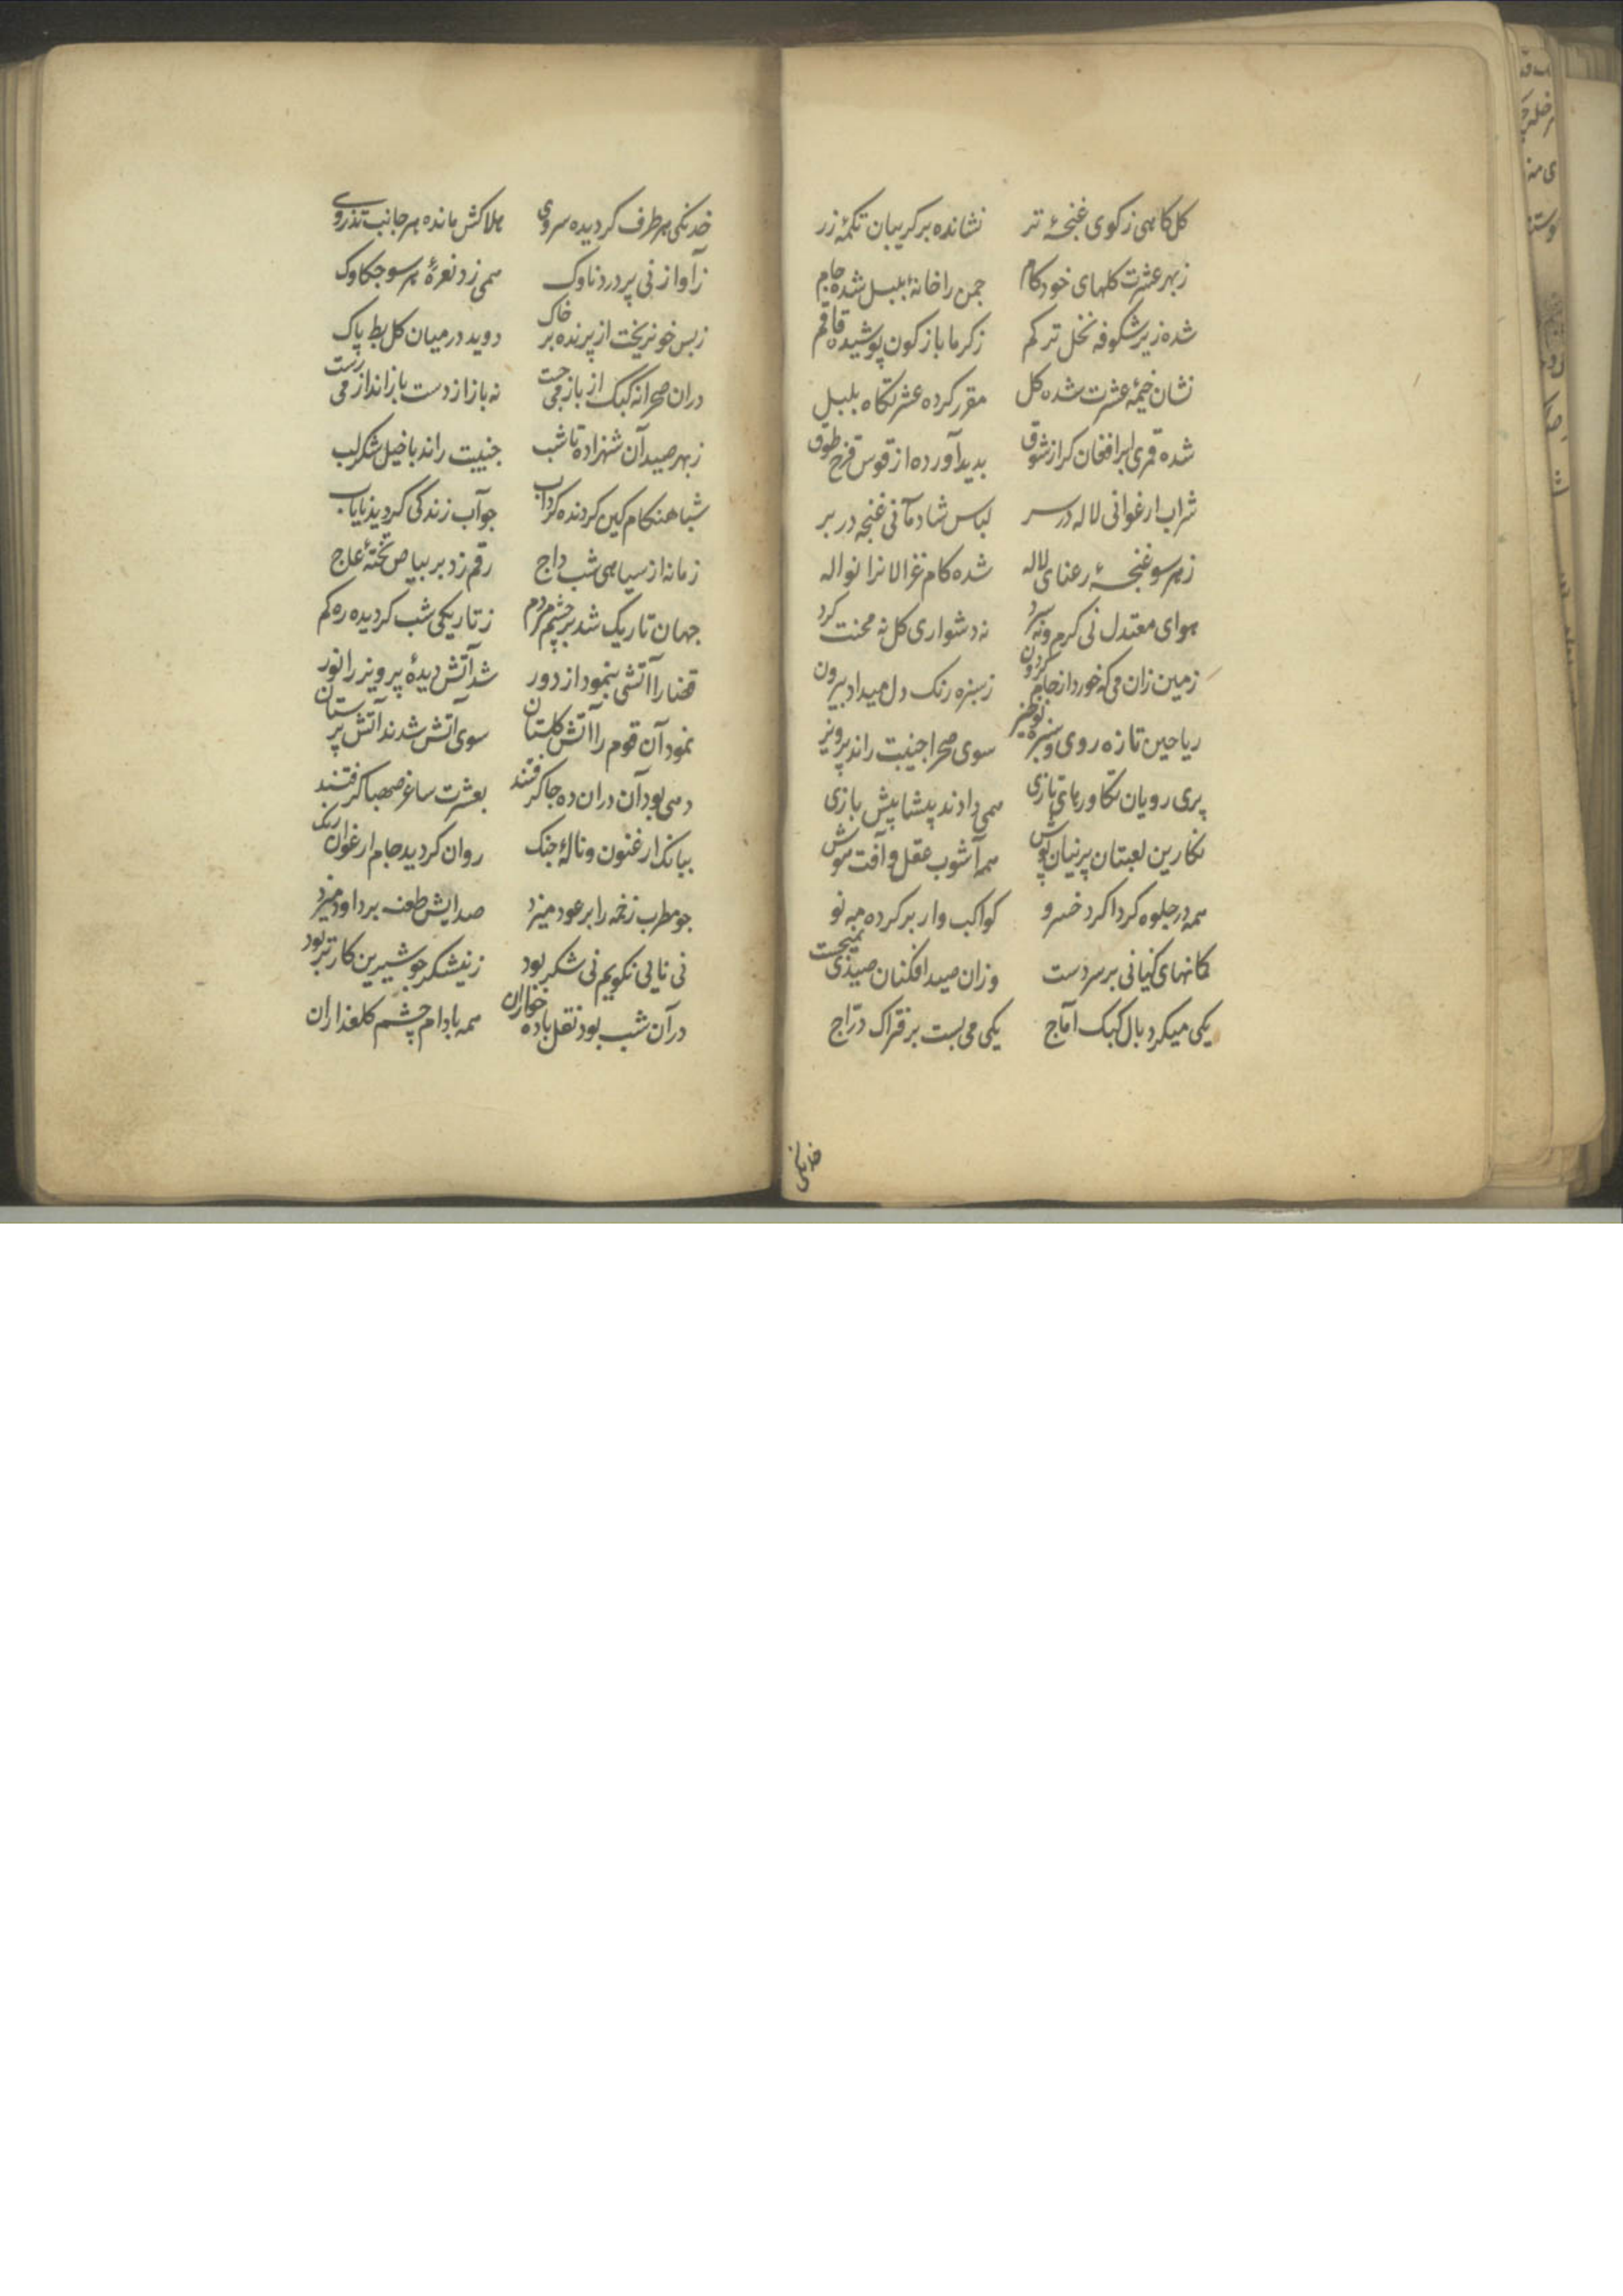 کل کاهی ز کوی غنچهٔ تر نشانده بر کریبان تکمهٔ زر
ز بهر عشرت کلهای خودکام جمن را خانهٔ بلبل شده جام
شده زیر شکوفه نخل تر کم ز کرما باز کون پوشیده قاقم
نشان خیمهٔ عشرت شده کل مقرر کرده عشرتکاه بلبل
شده قمری برافغان کز شوق بدید آورده از قوس قزح طوق
شراب ارغوانی لاله در سر لباس شادمانی غنجه در بر
ز هر سو غنجهٔ رعنای لاله شده کام غزالانرا نواله
هوای معتدل نی کرم و نه سرد نه دشواری کل نه محنت کرد
زمین زان می که خورد از جام کردون ز سبزه رنک دل میداد بیرون
ریاحین تازه روی و سبزه نوخیز سوی صحرا جنیبت راند پرویز
پری رویان تکاورهای تازی همی دادند پیشاپیش بازی
نکارین لعبتان پرنیان پوش همه آشوب عقل و آفت هوش
همه در جلوه کرداکرد خسرو کواکب وار بر کرده مه نو
کمانهای کیانی بر سر دست وزان صید افکنان صیدی نمیجست
یکی میکرد بال کبک آماج یکی می بست بر فتراک درّاج
خدنکی
خدنکی هر طرف کردیده سروی هلاکش مانده هر جانب تذروی
ز آواز نی پر درد ناوک همی زد نعرهٔ هر سو جکاوک
ز بس خون ریخت از پرنده بر خاک دوید در میان کل بط پاک
دران صحرا نه کبک از باز می جست نه باز از دست بازانداز می رست
ز بهر صید آن شهزاده تا شب جنیبت راند با خیل شکرلب
شباهنکام کین کردنده کرداب جو آب زندکی کردید نایاب
زمانه از سیاهی شب داج رقم زد بر بیاض تختهٔ عاج
جهان تاریک شد بر چشم مردم ز تاریکی شب کردیده ره کم
قضا را آتشی بنمود از دور شد آتش دیدهٔ پرویز را نور
نمود آن قوم را آتش کلستان سوی آتش شدند آتش پرستان
دهی بود آن دران ده جا کرفتند بعشرت ساغر صهبا کرفتند
ببانک ارغنون و نالهٔ جنک روان کردید جام ارغوان رنک
جو مطرب زخمه را بر عود میزد صدایش طعنه بر داود میزد
نی نایی نکویم نی شکر بود ز نیشکر جو شیرین کارتر بود
در آن شب بود نقل باده خواران همه بادام چشم کلعذاران